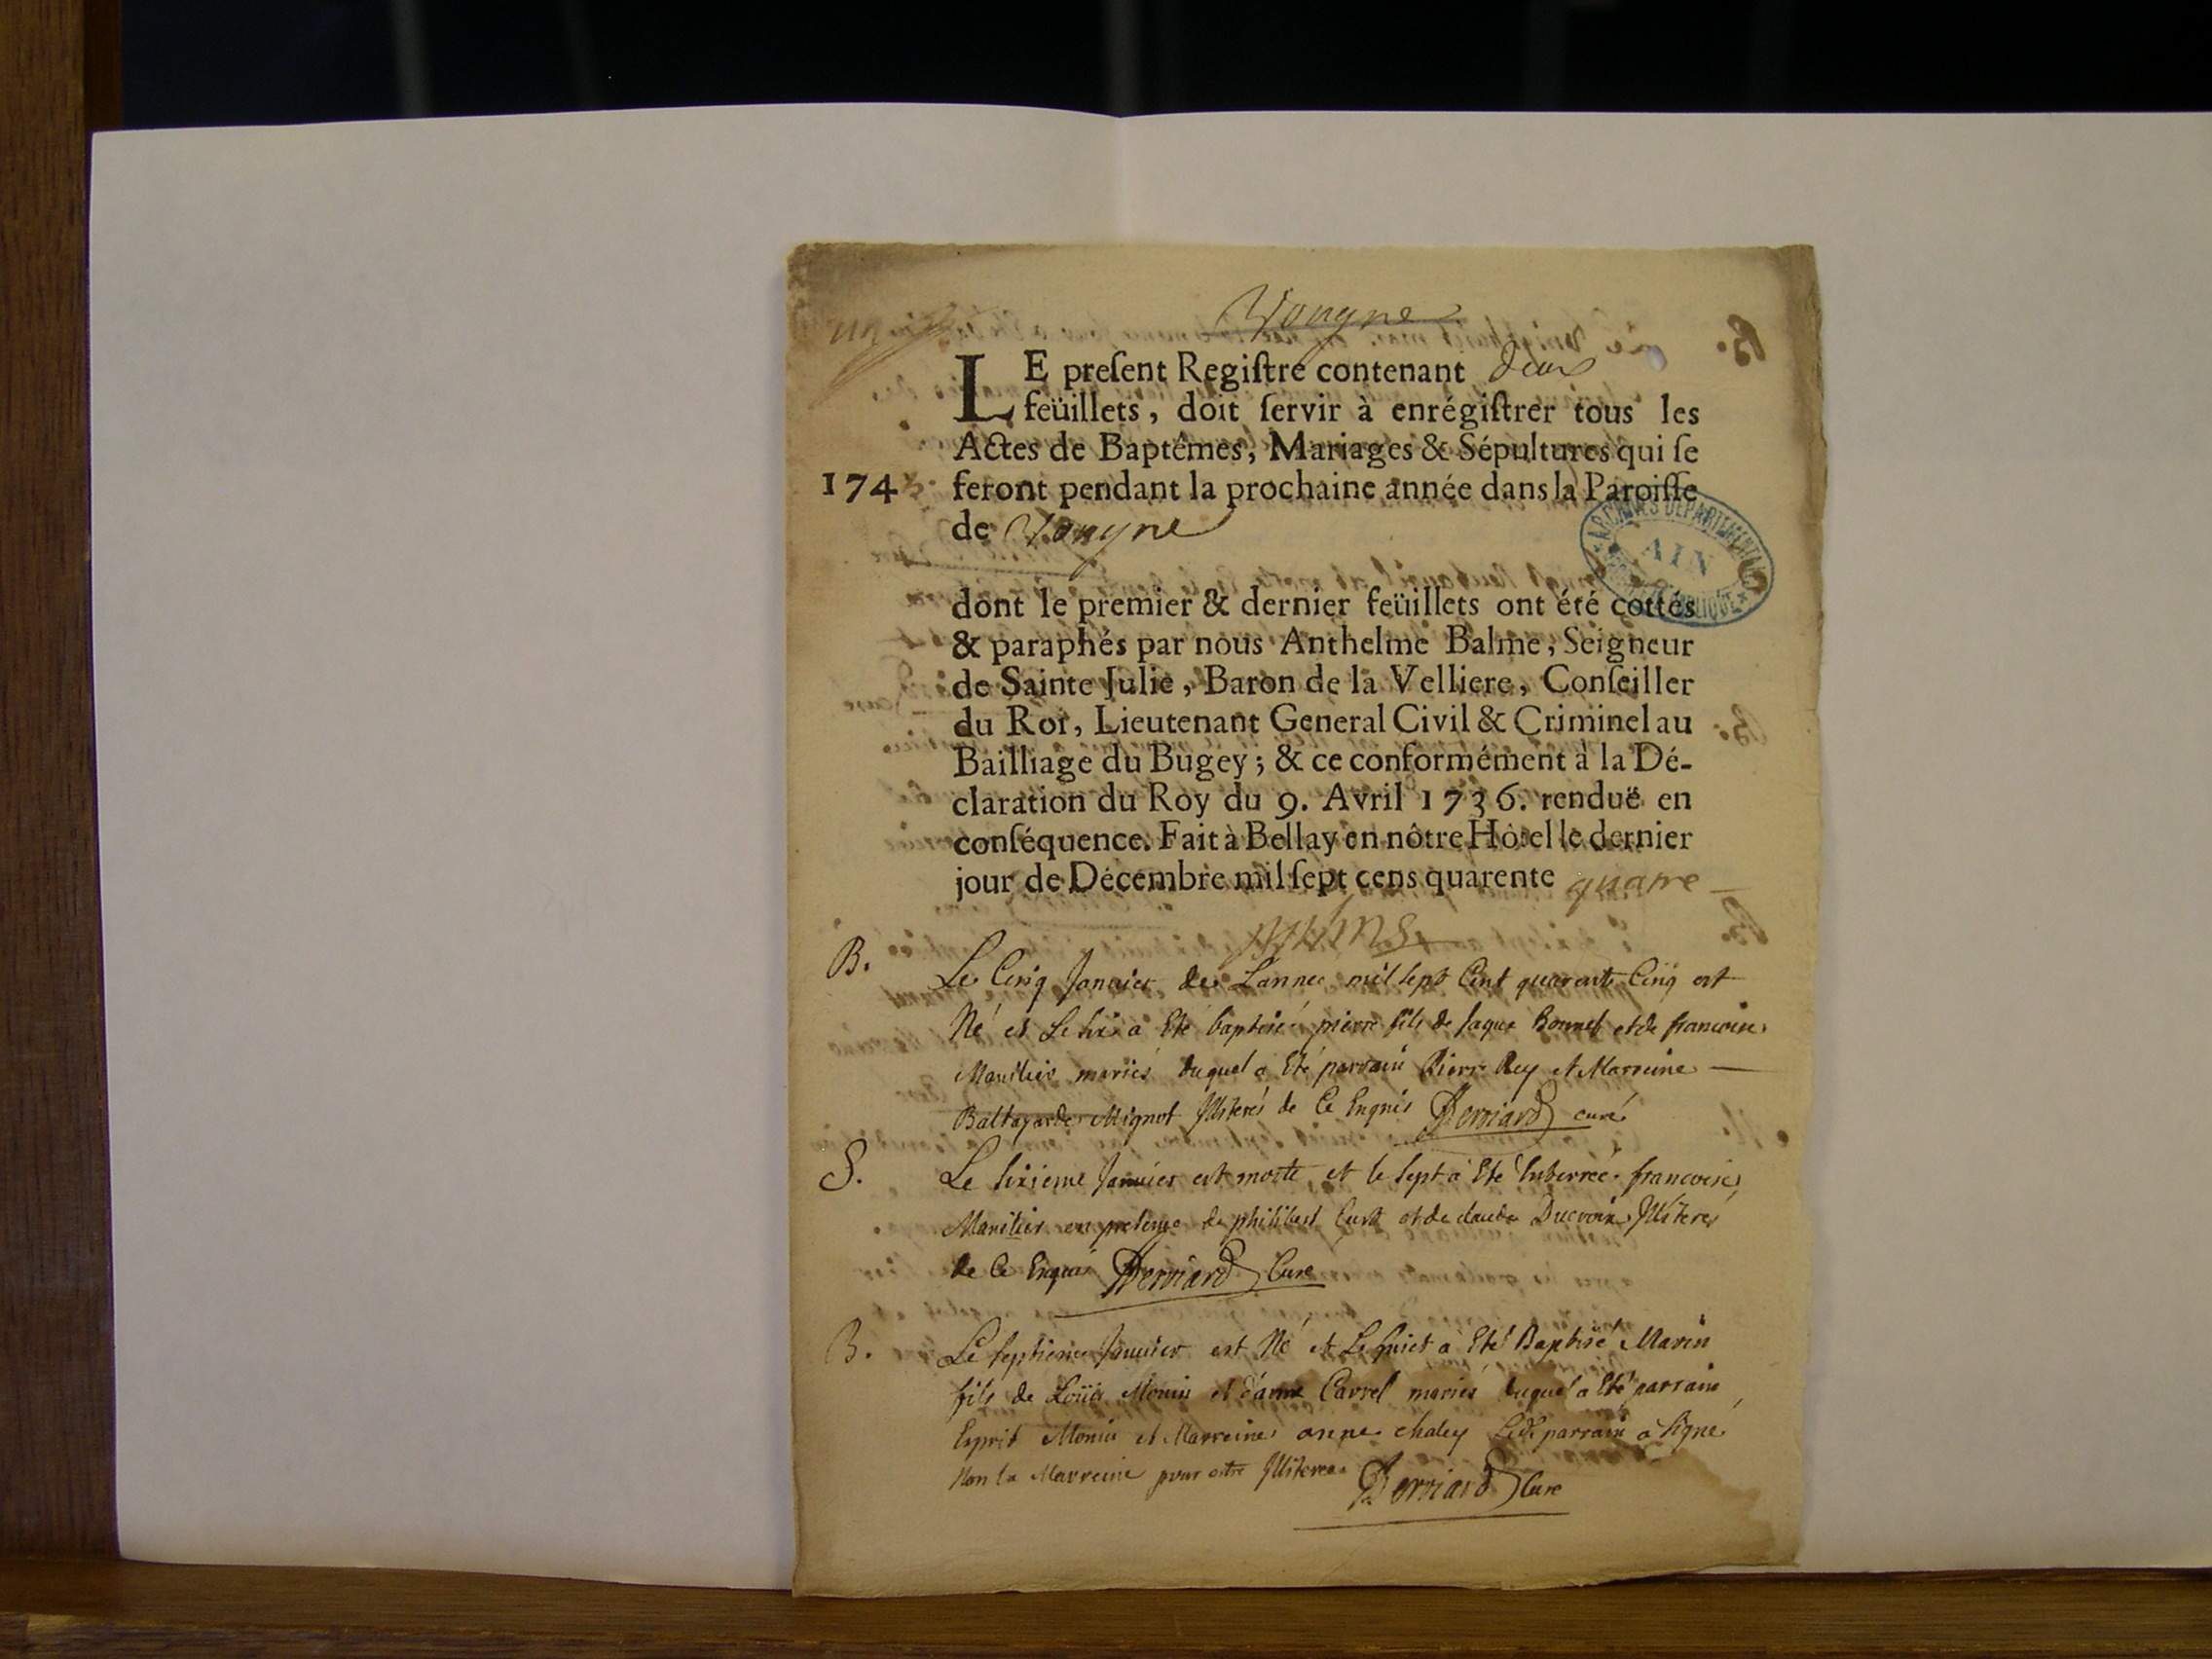 Vongne
LE preſent Regiſtre contenant deux
feüillets, doit ſervir à enrégiſtrer tous les
Actes de Baptêmes, Mariages & Sépultures qui ſe
1745. feront pendant la prochaine année dans la Paroiſſe
de Vongne
ARCHIVES DEPARTEMENTALES
AIN
dont le premier & dernier feüillets ont été cottés
& paraphés par nous Anthelme Balme, Seigneur
de Sainte Julie, Baron de la Velliere, Conſeiller
du Roi, Lieutenant General Civil & Criminel au
Bailliage du Bugey ; & ce conformément à la Dé-
claration du Roy du 9. Avril 1736. renduë en
conſéquence. Fait à Bellay en nôtre Hôtel le dernier
jour de Décembre mil ſept cens quarente quatre
B. Le Cinq Janvier de Lannee mil sept Cent quarente Cinq est
Né et Le six a Eté baptisé pierre fils de Jaque Bonnet et de francoise
Manilier mariés duquel a Eté parrain Pierre Rey et Marreine
Baltazarde Mignot Illiterés de Ce Enquis Derviard curé
S. Le sixieme Janvier est morte et le sept a Eté Enterrée francoise
Manilier en presence de philibert Curt et de claude Ducroix Illiterés
de Ce Enquis Derviard Curé
B. Le septieme Janvier est Né et Le huict a Eté Baptisé Marin
fils de Loüis Monin et d'anne Carrel mariés duquel a Eté parrain
Esprit Monin et Marreine anne chaley Ledt parrain a signé
Non la Marreine pour estre Illiteree Derviard Curé